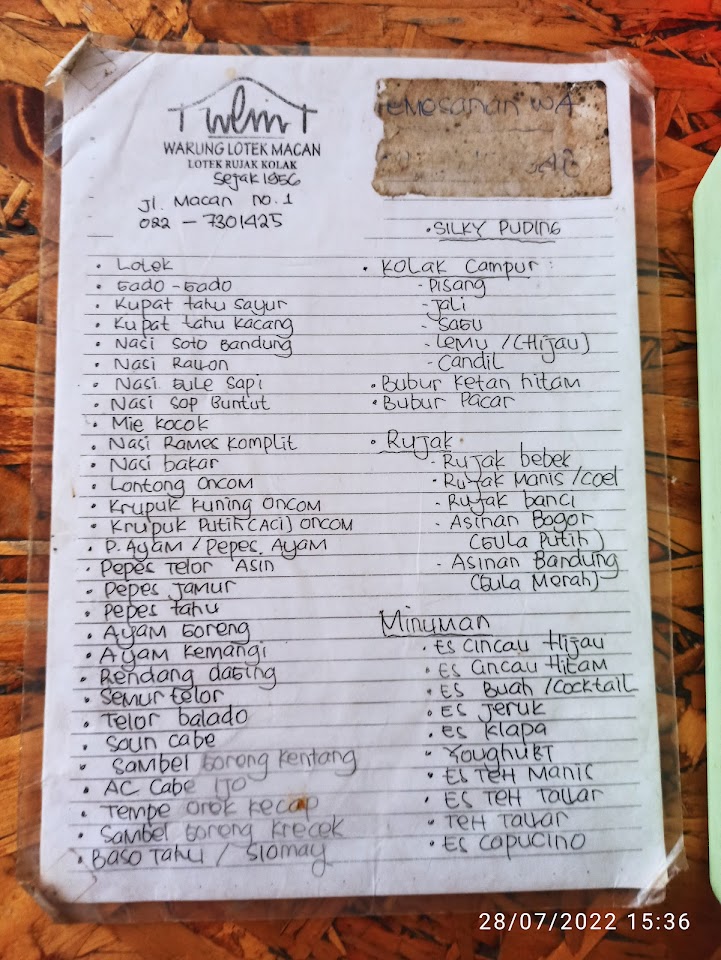 wlm
WARUNG LOTEK MACAN
LOTEK RUJAK KOLAK
Sejak 1956
Jl. Macan no. 1
022 - 7301425
Pemesanan WA
• Lotek
• Gado-Gado
• Kupat tahu sayur
• Kupat tahu kacang
• Nasi Soto Bandung
• Nasi Rawon
• Nasi Gule Sapi
• Nasi Sop Buntut
• Mie kocok
• Nasi Rames Komplit
• Nasi bakar
• Lontong oncom
• Krupuk kuning oncom
• Krupuk Putih (ACI) oncom
• P. Ayam / Pepes Ayam
• Pepes Telor Asin
• Pepes jamur
• Pepes tahu
• Ayam Goreng
• Ayam Kemangi
• Rendang daging
• Semur telor
• Telor balado
• Soun cabe
• Sambel Goreng kentang
• AC Cabe IJO
• Tempe orek kecap
• Sambel Goreng krecek
• Baso Tahu / Siomay
• SILKY PUDING
• Kolak Campur :
- Pisang
- Jali
- Sagu
- Lemu / (Hijau)
- Candil
• Bubur Ketan hitam
• Bubur Pacar
• Rujak
- Rujak bebek
• Rujak Manis / coel
- Rujak banci
- Asinan Bogor
(Gula Putih)
- Asinan Bandung
(Gula Merah)
Minuman
• Es Cincau Hijau
• Es Cincau Hitam
• Es Buah / Cocktail
• Es Jeruk
• Es Klapa
• Youghurt
• Es Teh Manis
• Es Teh Tawar
• Teh Tawar
• Es Capucino
28/07/2022 15:36